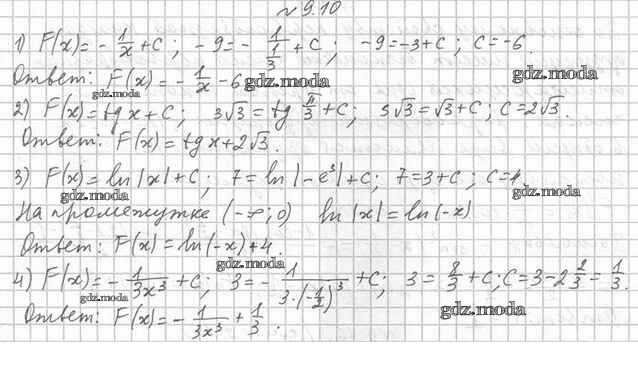 № 9.10
1) F(x) = - 1/x + C ; - 9 = - 1/(1/3) + C ; - 9 = -3 + C ; C = -6 .
Ответ: F(x) = - 1/x - 6 gdz.moda gdz.moda
gdz.moda
2) F(x) = tg x + C ; 3√3 = tg π/3 + C ; 3√3 = √3 + C ; C = 2√3 .
Ответ: F(x) = tg x + 2√3 .
3) F(x) = ln |x| + C ; 7 = ln |- e³| + C ; 7 = 3 + C ; C = 4
gdz.moda gdz.moda
На промежутке (-∞; 0) ln |x| = ln (-x)
Ответ: F(x) = ln(-x) + 4 .
gdz.moda
4) F(x) = - 1/(3x³) + C ; 3 = - 1/(3·(-1/2)³) + C ; 3 = 8/3 + C ; C = 3 - 2 2/3 = 1/3 .
gdz.moda gdz.moda
Ответ: F(x) = - 1/(3x³) + 1/3 .